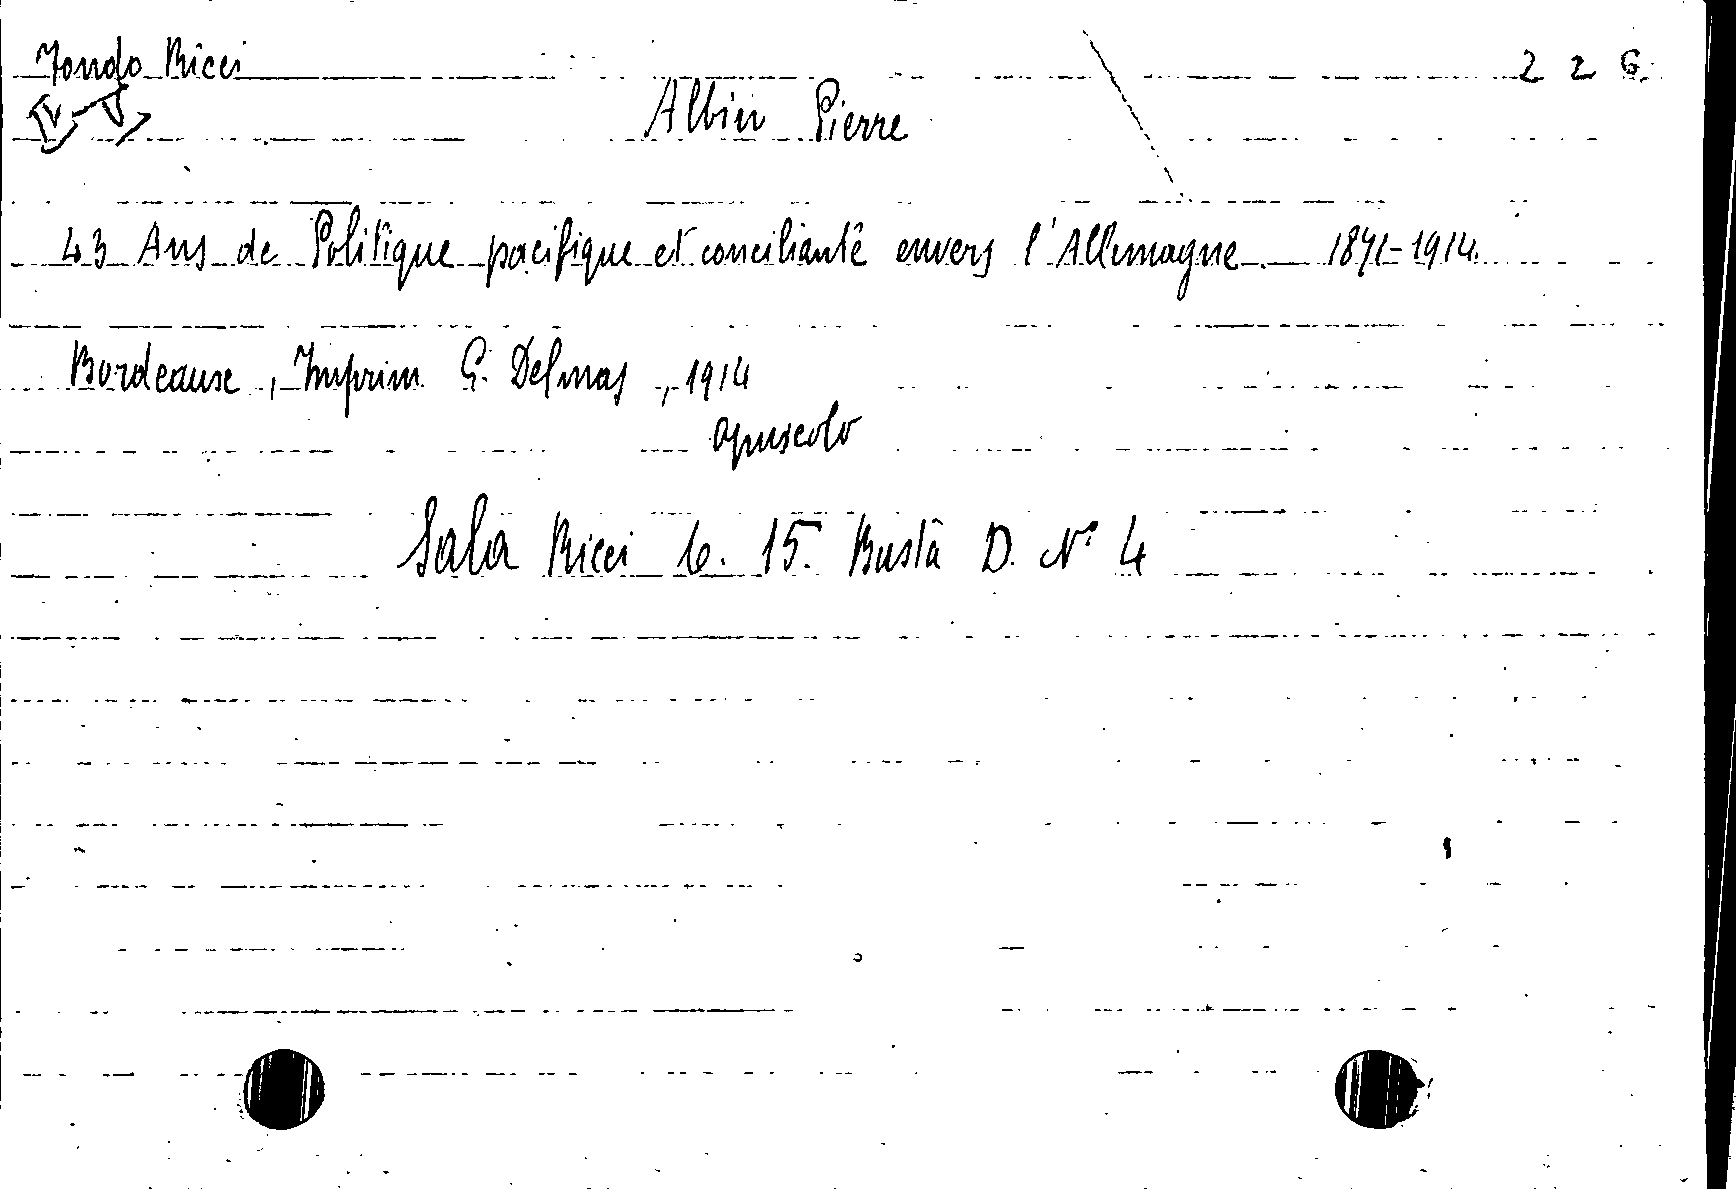 Fondo Ricci 2 2 6.
IV-V
Albin Pierre
43 Ans de Politique pacifique et conciliante envers l'Allemagne 1871-1914.
Bordeaux, Imprim. G. Delmas, 1914
opuscolo
Sala Ricci b. 15. Busta D. N° 4